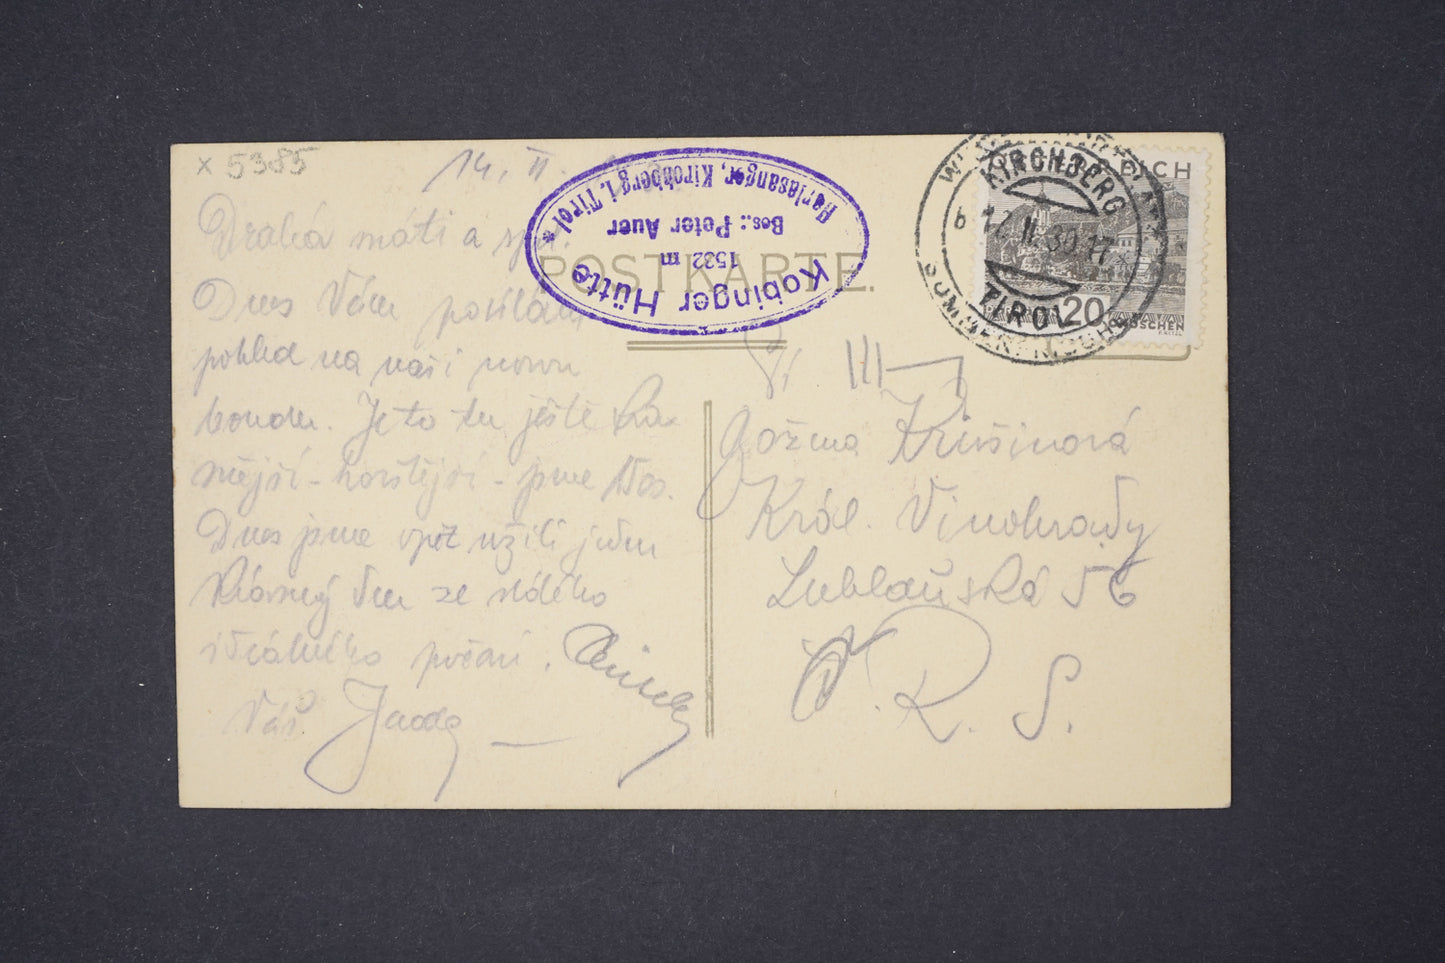 x 5385
14. II.
Drahá máti a
Dnes Vám posílám
pohled na naši novou
boudu. Je to tu ještě krá-
snější - horštější - jsme
Dnes jsme opět užili jeden
krásný den ze
ideálního počasí.
Váš Jarda
Kobinger Hütte
1532 m
Bes.: Peter Auer
Harlasanger, Kirchberg i. Tirol *
POSTKARTE.
ÖSTERREICH
20
GROSCHEN
KIRCHBERG
b 17. II. 30. 17 *
TIROL
WINTERSPORT
SOMMERFRISCHE
Pí
Božena Krušinová
Král. Vinohrady
Lublaňská 56
Č. R. S.